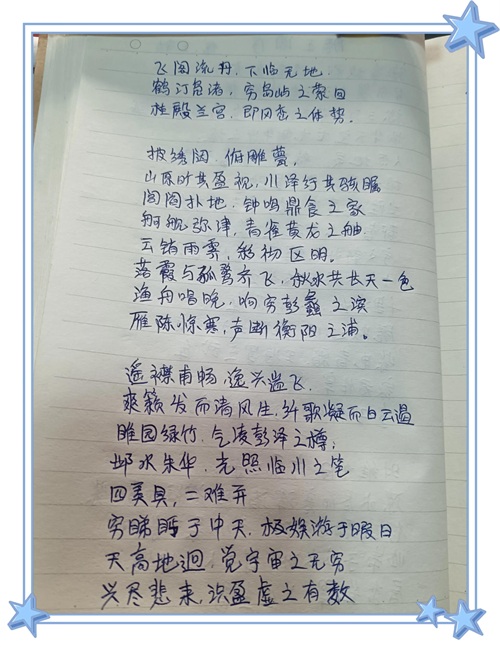 飞阁流丹，下临无地．
鹤汀凫渚，穷岛屿之萦回
桂殿兰宫，即冈峦之体势。
披绣闼，俯雕甍，
山原旷其盈视，川泽纡其骇瞩
闾阎扑地，钟鸣鼎食之家
舸舰弥津，青雀黄龙之舳
云销雨霁，彩彻区明。
落霞与孤鹜齐飞，秋水共长天一色
渔舟唱晚，响穷彭蠡之滨
雁阵惊寒，声断衡阳之浦。
遥襟甫畅，逸兴遄飞．
爽籁发而清风生，纤歌凝而白云遏
睢园绿竹，气凌彭泽之樽；
邺水朱华，光照临川之笔
四美具，二难并
穷睇眄于中天，极娱游于暇日
天高地迥，觉宇宙之无穷
兴尽悲来，识盈虚之有数